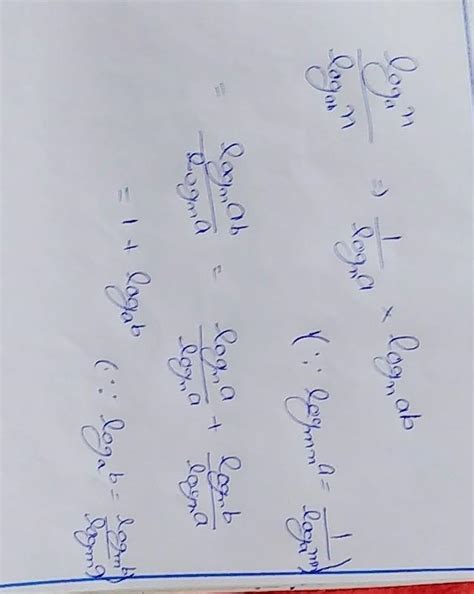 log_a n / log_ab n ⇒ 1 / log_n a × log_n ab
(∵ log_m a = 1 / log_a m)
= log_n ab / log_n a = log_n a / log_n a + log_n b / log_n a
= 1 + log_a b (∵ log_a b = log_m b / log_m a)